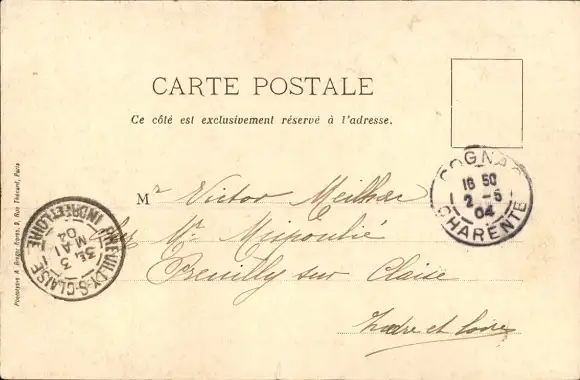 CARTE POSTALE
Ce côté est exclusivement réservé à l'adresse.
COGNAC
16 50
2 -5
04
CHARENTE
Mr Victor Meilhac
chez Mr Mispoulié
Preuilly sur Claise
Indre et Loire
PREUILLY-S-CLAISE
3E
3
MAI
04
INDRE ET LOIRE
Phototypie A. Bergeret, Paris